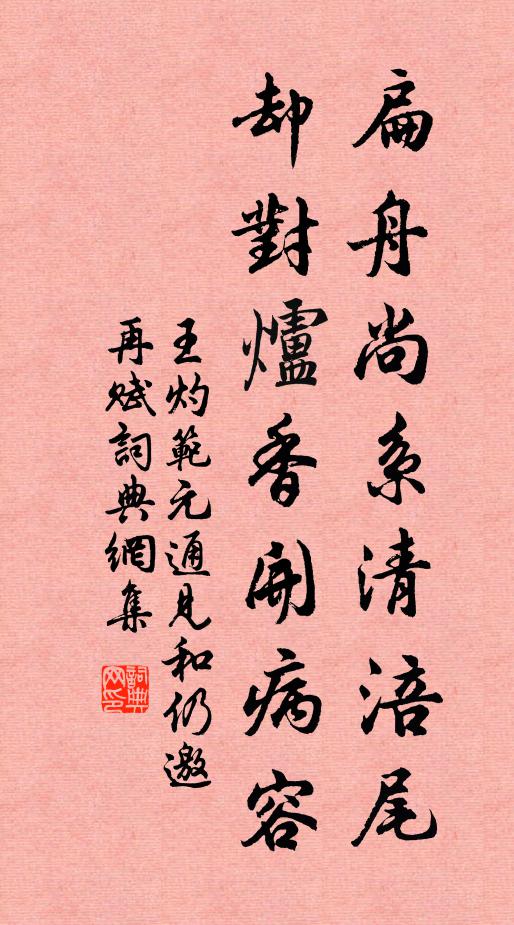 扁舟尚系清涪尾
却對爐香開病容
王灼範元通見和仍邀
再賦詞典網集
詞典网印